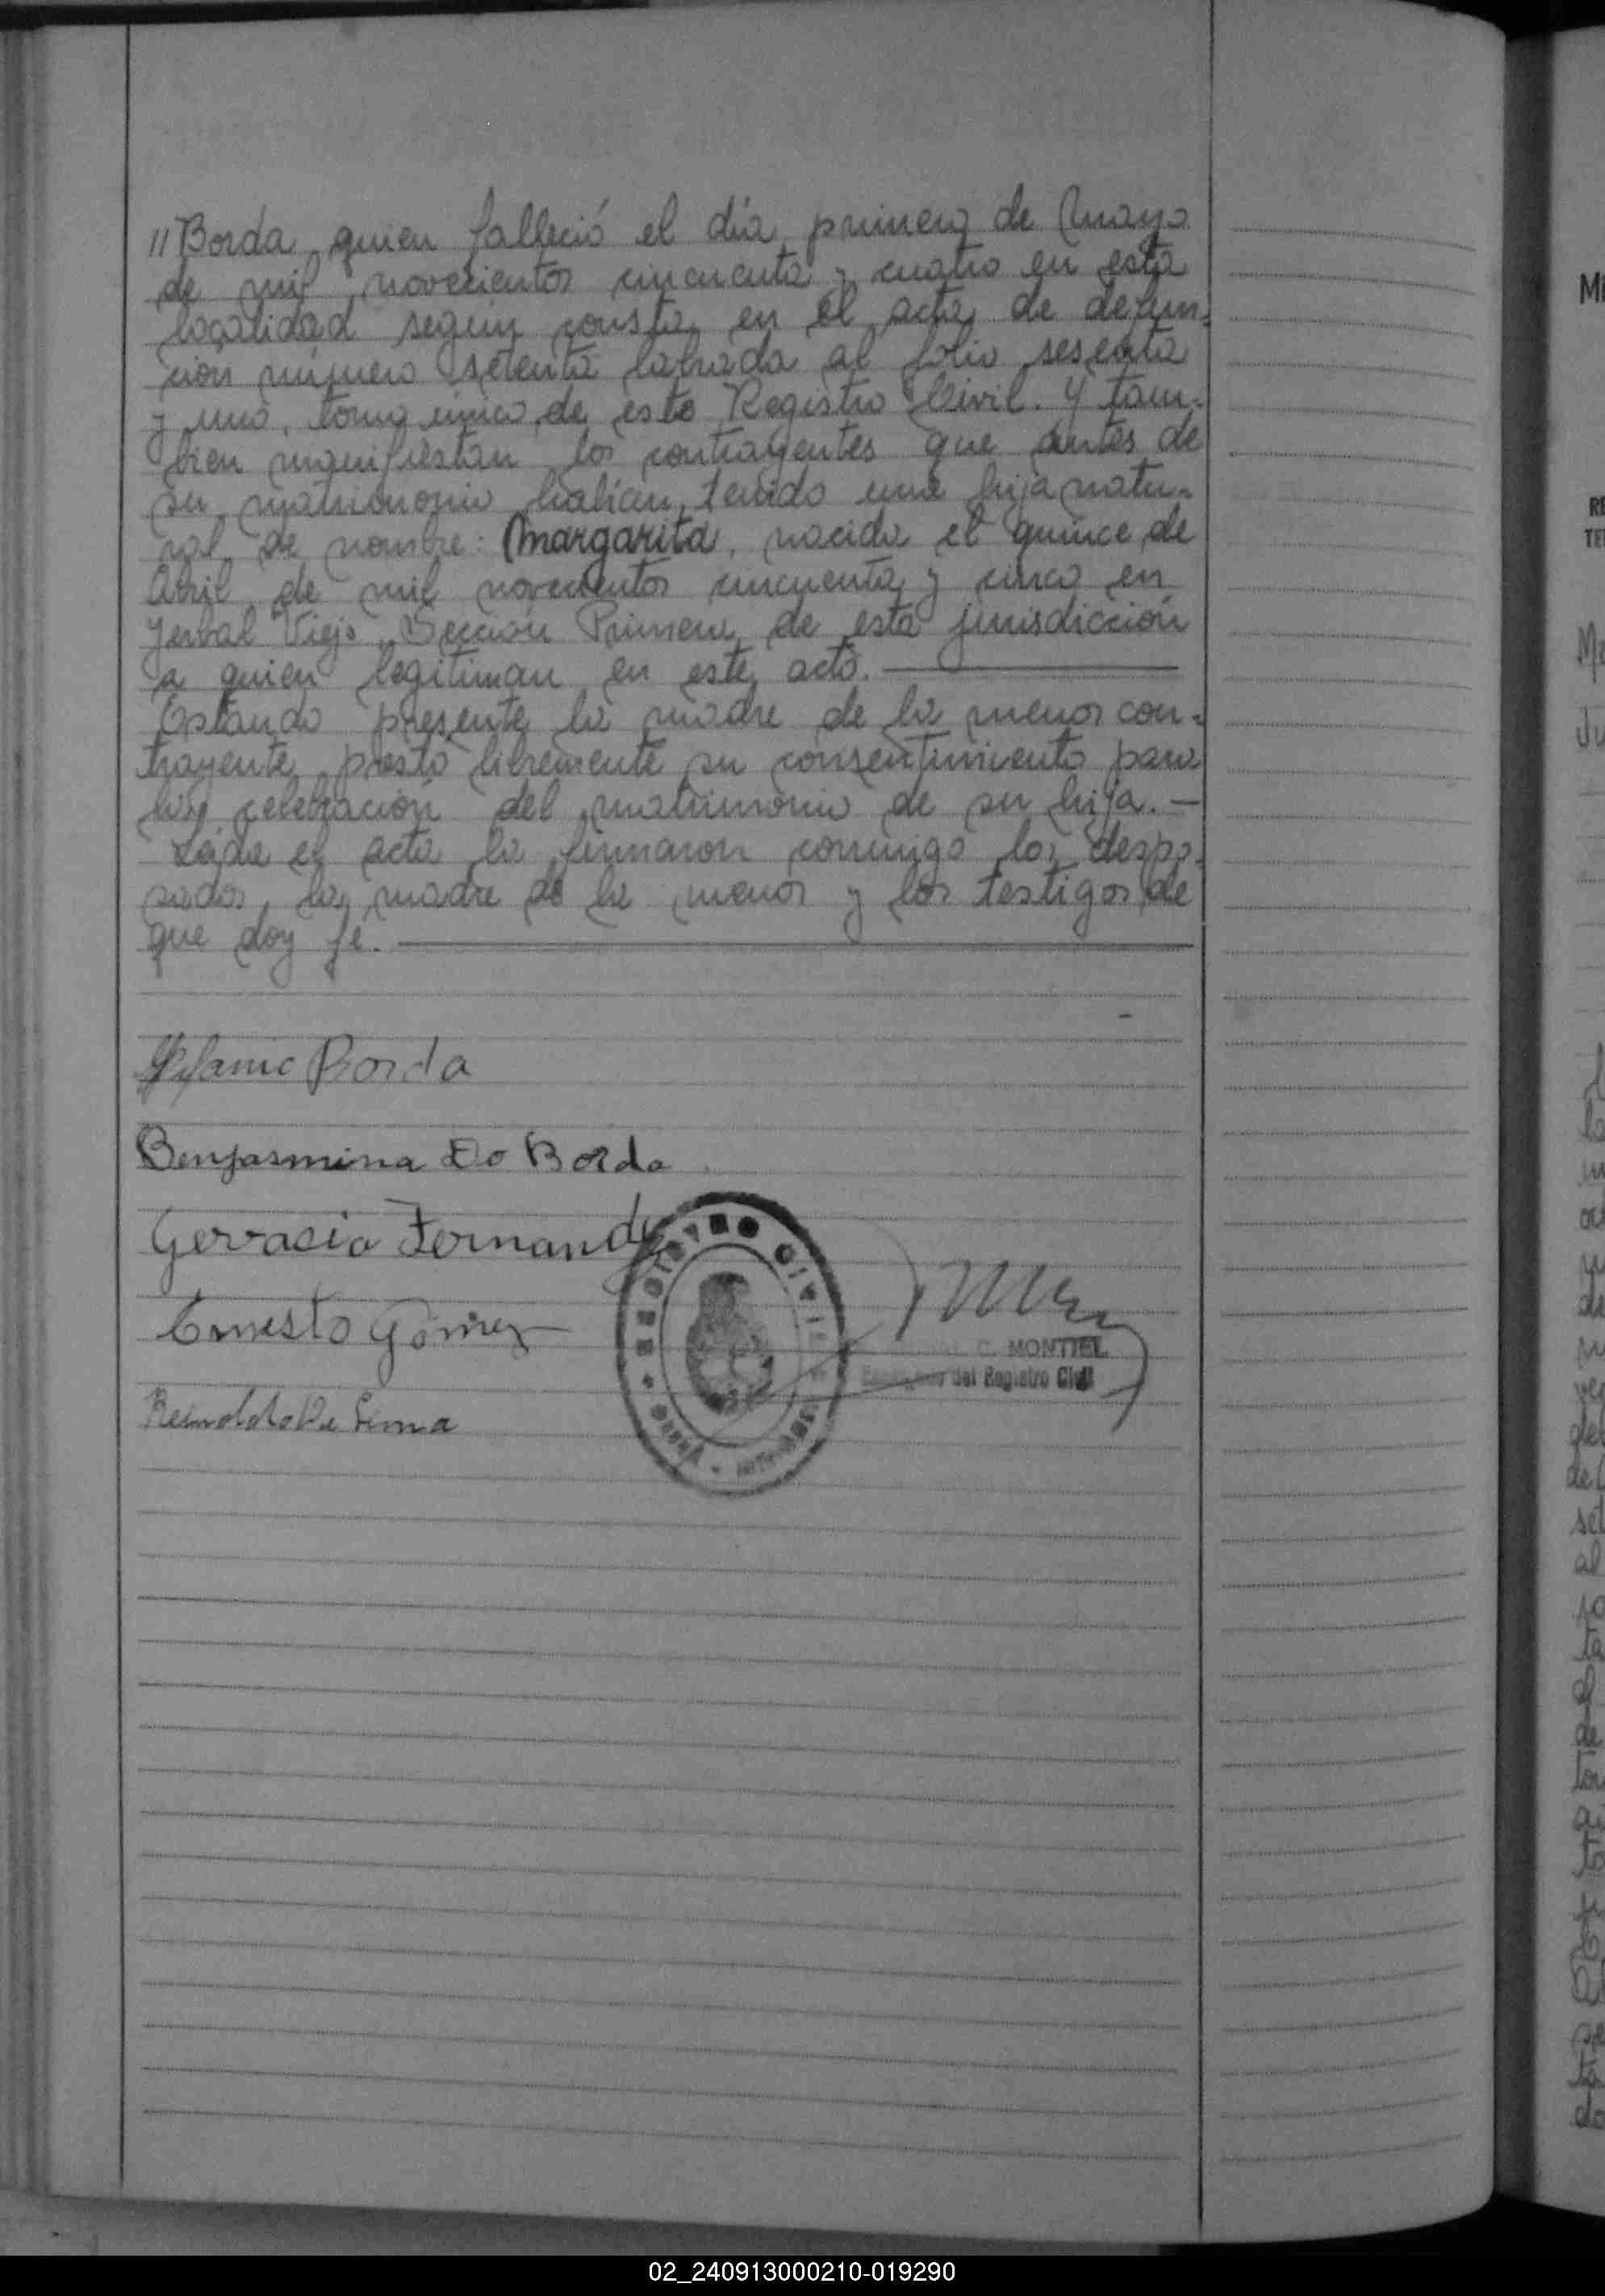 //Borda, quien falleció el día primero de Mayo
de mil novecientos cincuenta y cuatro en esta
localidad según consta en el acta de defun-
ción número setenta labrada al folio sesenta
y uno, tomo único de este Registro Civil. Y tam-
bien manifiestan los contrayentes que antes de
su matrimonio habían tenido una hija natu-
ral de nombre: Margarita, nacida el quince de
Abril de mil novecientos cincuenta y cinco en
Yerbal Viejo Sección Primera de esta jurisdicción
a quien legitiman en este acto.
Estando presente la madre de la menor con-
trayente prestó libremente su consentimiento para
la celebración del matrimonio de su hija. —
Leída el acta la firmaron conmigo los despo-
sados, la madre de la menor y los testigos de
que doy fé.
Borda
Benjasmina Do Borda
Gervacio Fernandez
Ernesto Gómez
REGISTRO CIVIL
C. MONTIEL
Encargado del Registro Civil
Reinoldo De Lima
Mi
RE
TE
Ju
02_240913000210-019290